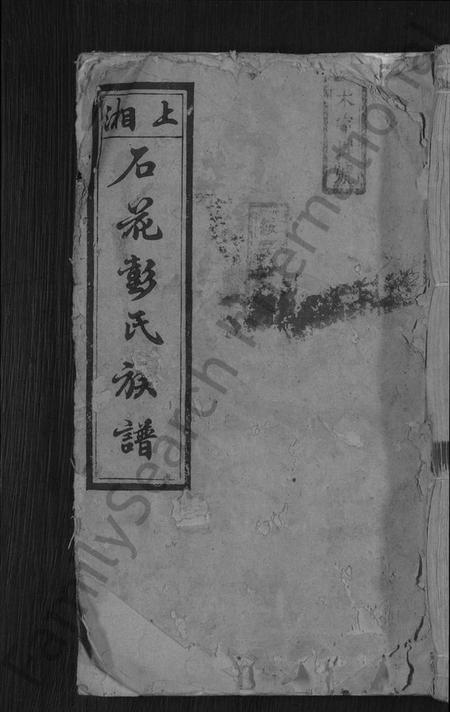 上湘
石花彭氏族譜
FamilySearch International